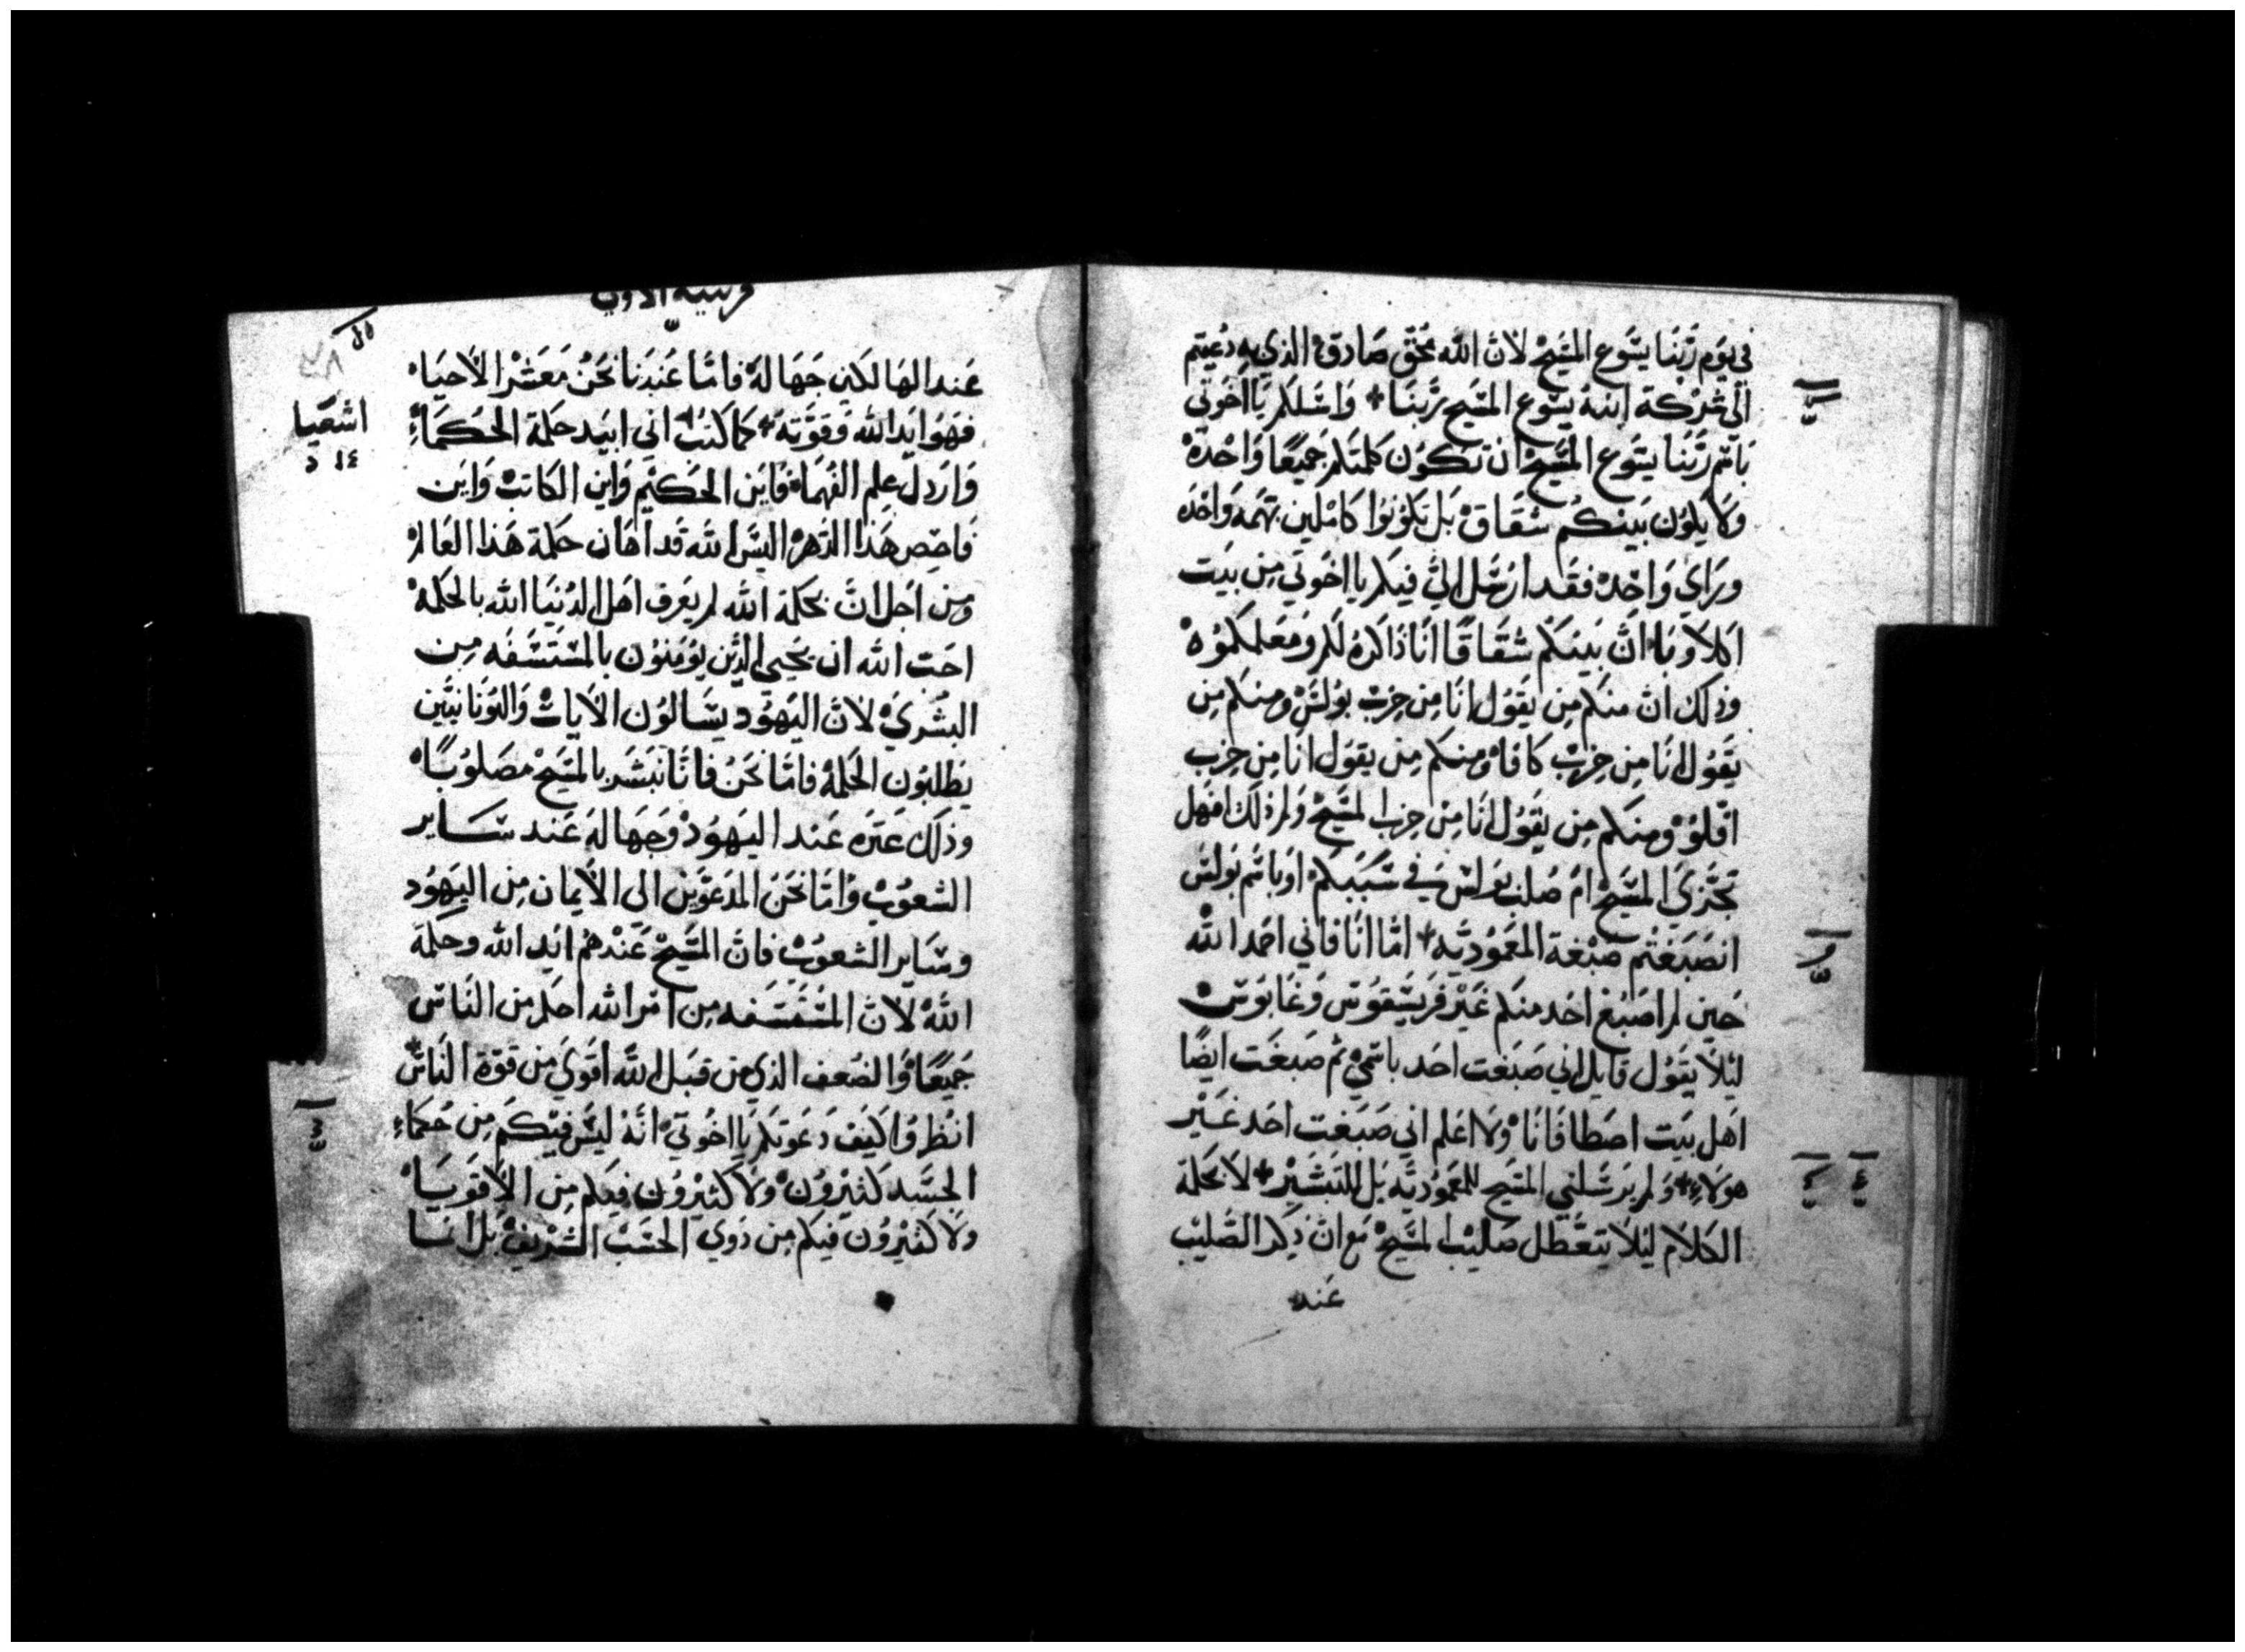 في يوم ربنا يسوع المسيح لان الله محق صادق الذي به دعيتم
الى شركة ابنه يسوع المسيح ربنا + واسلكم يا اخوتي
باسم ربنا يسوع المسيح ان تكون كلمتكم جميعا واحدة
ولا يكون بينكم شقاق بل تكونوا كاملين بهمة واحدة
وراي واحد فقد ارسل الي فيكم يا اخوتي من بيت
اكلاوبا ان بينكم شقاقا انا ذاكره لكم ومعلمكموه
وذلك ان منكم من يقول انا من حزب بولس ومنكم من
يقول انا من حزب كافا ومنكم من يقول انا من حزب
افلو ومنكم من يقول انا من حزب المسيح ولم ذلك افهل
تجزي المسيح ام صلب بولس في سببكم او باسم بولس
انصبغتم صبغة المعمودية + اما انا فاني احمد الله
حين لم اصبغ احد منكم غير قريسقوس وغابوس
ليلا يقول قايل اني صبغت احد باسمي ثم صبغت ايضا
اهل بيت اصطافانا ولا اعلم اني صبغت احد غير
هولاء + ولم يرسلني المسيح للمعمودية بل للتبشير + لا بحكمة
الكلام ليلا يتعطل صليب المسيح مع ان ذكر الصليب
عند
اشعيا
١٤ د
عند الهالكين جهالة فاما عندنا نحن معشر الاحياء
فهو ايد الله وقوته + كما كتب اني ابيد حكمة الحكماء
وارذل علم الفهماء فاين الحكيم واين الكاتب واين
فاحص هذا الدهر اليس الله قد اهان حكمة هذا العالم
ومن اجل ان بحكمة الله لم يعرف اهل الدنيا الله بالحكمة
احب الله ان يحيي الذين يومنون بالمستسفه من
البشري لان اليهود يسالون الايات واليونانيين
يطلبون الحكمة فاما نحن فاننا نبشر بالمسيح مصلوبا
وذلك عترة عند اليهود وجهالة عند ساير
الشعوب واما نحن المدعوين الى الايمان من اليهود
وساير الشعوب فان المسيح عندهم ايد الله وحكمة
الله لان المستسفه من امر الله احكم من الناس
جميعا والضعف الذي من قبل الله اقوي من قوة الناس
انظروا كيف دعوتكم يا اخوتي انه ليس فيكم من حكماء
الجسد كثيرون ولا كثيرون فيكم من الاقويا
ولا كثيرون فيكم من ذوي الحسب الشريف بل انما